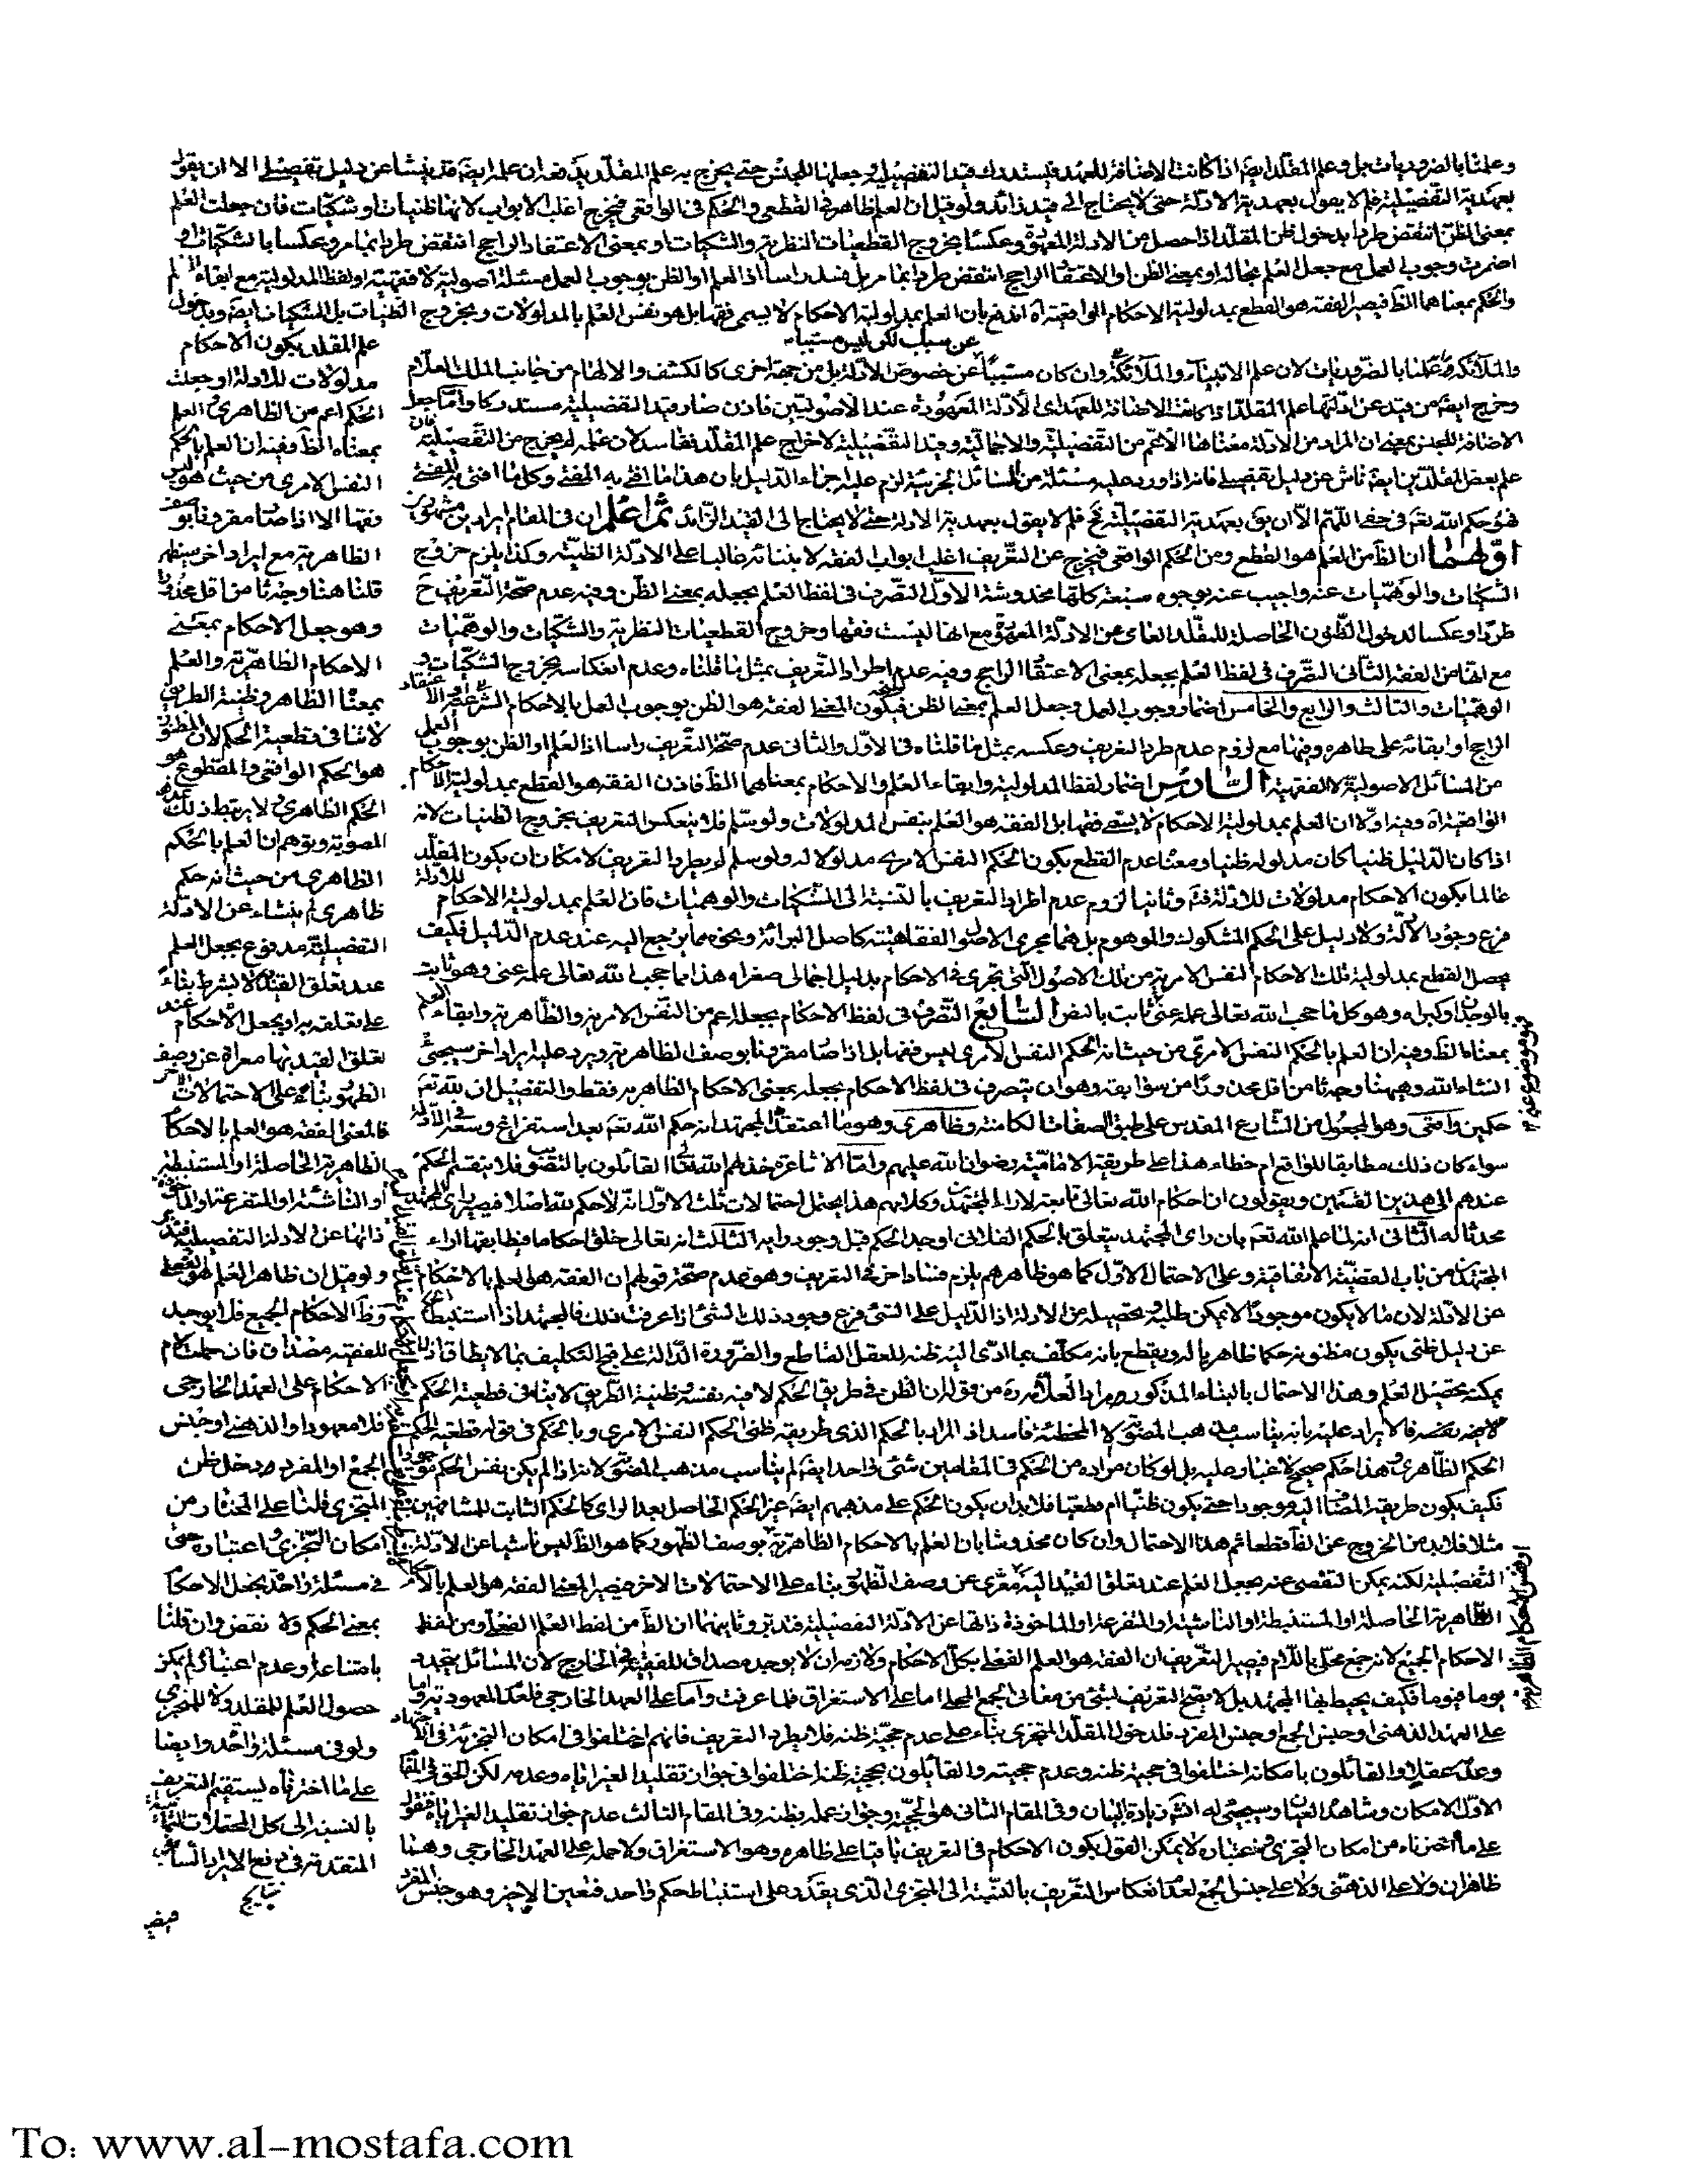 وعلمنا بالضروريات بل وعلم المقلد ايضا اذا كانت الاضافة للعهد فيستدرك قيد التفصيلية وجعلها للجنس حتى يخرج به علم المقلد يدفعه ان علمه ايضا قد ينشا عن دليل تفصيلى الا ان يقول
بعهدية التفصيلية فلم لا يقول بعهدية الادلة حتى لا يحتاج الى قيد زائد ولو قيل ان العلم ظاهر فى القطعى والحكم فى الواقعى فيخرج اغلب الابواب لانها ظنيات او شكيات فان جعلت العلم
بمعنى الظن انتقض طردا بدخول ظن المقلد اذا حصل من الادلة المعهودة وعكسا بخروج القطعيات النظرية والشكيات او بمعنى الاعتقاد الراجح انتقض طردا بما مر وعكسا بالشكيات او
اضمرت وجوب العمل مع جعل العلم بحاله او بمعنى الظن او الاعتقاد الراجح انتقض طردا بما مر بل فسد راسا اذ العلم او الظن بوجوب العمل مسئلة اصولية لا فقهية او لفظ المدلولية مع ابقاء العلم
والحكم بمعناهما الظ فيصير الفقه هو القطع بمدلولية الاحكام الواقعية اه اندفع بان العلم بمدلولية الاحكام لا يسمى فقها بل هو نفس العلم بالمدلولات وبخروج الظنيات بل الشكيات ايضا وبدخول
علم المقلد بكون الاحكام
مدلولات للادلة او جعلت
الحكم اعم من الظاهرى والعلم
بمعناه الظ وفيه ان العلم بالحكم
النفس الامرى من حيث هو ليس
فقها الا اذا صار مقرونا بوصف
الظاهرية مع ايراد اخر سيظهر
قلنا هنا وجه ثامن اقل محذورا
وهو جعل الاحكام بمعنى
الاحكام الظاهرية والعلم
بمعناه الظاهر وظنية الطريق
لا تنافى قطعية الحكم لان المظنون
هو الحكم الواقعى والمقطوع هو
الحكم الظاهرى ولا يرتبط ذلك
المصوبة وتوهم ان العلم بالحكم
الظاهرى من حيث انه حكم
ظاهرى لم ينشاء عن الادلة
التفصيلية مدفوع بجعل العلم
عند تعلق القيد لا بشرط بناء
على تعلقه به او بجعل الاحكام عند
تعلق القيد بها معراة عن وصف
الظهور بناء على الاحتمالات الاخر
فالمعنى الفقه هو العلم بالاحكام
الظاهرية الحاصلة او المستنبطة
او الناشئة او المتفرعة او الماخوذة
ذاتها عن الادلة التفصيلية فتدبر
ولو قيل ان ظاهر العلم هو الفعلى
وظ الاحكام الجميع فلا يوجد
للفقيه مصداق فان حملت لام
الاحكام على العهد الخارجى
فلا معهود او الذهنى او جنس
الجمع او المفرد دخل ظن
المتجزى قلنا على المختار من
امكان التجزى واعتباره حتى
فى مسئلة واحدة بجعل الاحكام
بمعنى الحكم ولا نقض وان قلنا
بامتناعه او عدم اعتباره لم يمكن
حصول العلم للمقلد ولا للمتجزى
ولو فى مسئلة واحدة وايضا
على ما اخترناه يستقيم التعريف
بالنسبة الى كل المحتملات الثمانية
المتقدمة فى دفع الايراد السابق
عن سبب لكى ليس مستببا
والملائكة وعلمنا بالضروريات لان علم الانبياء والملائكة وان كان مستببا عن خصوص الادلة بل من جهة اخرى كالكشف والالهام من جانب الملك العلام
وخرج ايضا من قيد عن ادلتها علم المقلد اذا كانت الاضافة للعهد اى الادلة المعهودة عند الاصوليين فاذن صار قيد التفصيلية مستدركا واما جعل
الاضافة للجنس بمعنى ان المراد من الادلة معناها الاعم من التفصيلية والاجمالية وقيد التفصيلية لاخراج علم المقلد ففاسد لان علمه لم يخرج من التفصيلية فان
علم بعض المقلدين ايضا ناش عن دليل تفصيلى فانه اذا ورد عليه مسئلة من المسائل الجزئية لزم عليه اجراء الدليل بان هذا ما افتى به المفتى وكل ما افتى به المفتى
فهو حكم الله تعم فى حقى اللهم الا ان يق بعهدية التفصيلية نحن فلم لا يقول بعهدية الادلة حتى لا يحتاج الى القيد الزائد ثم اعلم ان فى المقام ايرادين مشهورين
اولهما ان الظ من العلم هو القطع ومن الحكم الواقعى فيخرج عن التعريف اغلب ابواب الفقه لابتنائه غالبا على الادلة الظنية وكذا يلزم خروج
الشكيات والوهميات عنه واجيب عنه بوجوه سبعة كلها مخدوشة الاول التصرف فى لفظ العلم بجعله بمعنى الظن وفيه عدم صحة التعريف ح
طردا وعكسا لدخول الظنون الحاصلة للمقلد العامى عن الادلة المعهودة مع انها ليست فقها وخروج القطعيات النظرية والشكيات والوهميات
مع انها من الفقه الثانى التصرف فى لفظ العلم بجعله بمعنى الاعتقاد الراجح وفيه عدم اطراد التعريف بمثل ما قلناه وعدم انعكاسه بخروج الشكيات و
الوهميات والثالث والرابع والخامس اضمار وجوب العمل وجعل العلم بمعنى الظن فيكون المعنى الفقه هو الظن بوجوب العمل بالاحكام الشرعية او الاعتقاد
الراجح او ابقائه على ظاهره وفيها مع لزوم عدم طرد التعريف وعكسه بمثل ما قلناه فى الاول والثانى عدم صحة التعريف راسا اذ العلم او الظن بوجوب العمل
من المسائل الاصولية لا الفقهية السادس اضمار لفظ المدلولية وابقاء العلم والاحكام بمعناهما الظ فاذن الفقه هو القطع بمدلولية الاحكام
الواقعية اه وفيه اولا ان العلم بمدلولية الاحكام لا يسمى فقها بل الفقه هو العلم بنفس المدلولات ولو سلم فلا ينعكس التعريف بخروج الظنيات لانه
اذا كان الدليل ظنيا كان مدلوله ظنيا ومعناه عدم القطع بكون الحكم النفس الامرى مدلولا له ولو سلم لم يطرد التعريف لامكان ان يكون المقلد
عالما بكون الاحكام مدلولات للادلة فت وثانيا لزوم عدم اطراد التعريف بالنسبة الى الشكيات والوهميات فان العلم بمدلولية الاحكام للادلة
فرع وجود الادلة ولا دليل على الحكم المشكوك والموهوم بل هما مجرى الاصول الفقاهتية كاصل البرائة ونحوه مما يرجع اليه عند عدم الدليل فكيف
يحصل القطع بمدلولية تلك الاحكام النفس الامرية من تلك الاصول التى تجرى فى الاحكام بدليل اجمالى صغراه هذا مما حجب الله تعالى علمه عنى وهو ثابت
بالوجدان وكبراه وهو كل ما حجب الله تعالى علمه عنى ثابت بالنص السابع التصرف فى لفظ الاحكام بجعله اعم من النفس الامرية والظاهرية وابقاء العلم
بمعناه الظ وفيه ان العلم بالحكم النفس الامرى من حيث انه الحكم النفس الامرى ليس فقها بل اذا صار مقرونا بوصف الظاهرية ويرد عليه ايراد اخر سيجئ
انشاء الله وهيهنا وجه ثامن اقل محذورا من سوابقه وهو ان يتصرف فى لفظ الاحكام بجعله بمعنى الاحكام الظاهرية فقط والتفصيل ان لله تعم
حكمين واقعى وهو المجعول من الشارع المقدس على طبق الصفات الكامنة وظاهرى وهو ما اعتقد المجتهد انه حكم الله تعم بعد استفراغ وسعه فى الادلة
سواء كان ذلك مطابقا للواقع ام خطاء هذا على طريقة الامامية رضوان الله عليهم واما الاشاعرة خذلهم الله تعالى القائلون بالتصويب فلا ينقسم الحكم
عندهم الى هذين القسمين ويقولون ان احكام الله تعالى تابعة لاراء المجتهدين وكلامهم هذا يحتمل احتمالات ثلث الاول انه لا حكم لله اصلا فيصير راى المجتهد
محدثا له الثانى انه لما علم الله تعم بان راى المجتهد يتعلق بالحكم الفلانى اوجد الحكم قبل وجود رايه الثالث انه تعالى خلق احكاما فيطابقها اراء
المجتهدين من باب القضية الاتفاقية وعلى الاحتمال الاول كما هو ظاهرهم يلزم فساد اخر فى التعريف وهو عدم صحة قولهم ان الفقه هو العلم بالاحكام
عن الادلة لان ما لا يكون موجودا لا يمكن طلبه وتحصيله من الادلة اذ الدليل على الشئ فرع وجود ذلك الشئ اذا عرفت ذلك فالمجتهد اذا استنبط
عن دليل ظنى يكون مظنونه حكما ظاهريا له ويقطع بانه مكلف بما ادى اليه ظنه للعقل القاطع والضرورة الدالة على قبح التكليف بما لا يطاق اذ لا
يمكنه تحصيل العلم وهذا الاحتمال بالبناء المذكور مراد العلامة ره من قوله ان الظن فى طريق الحكم لا فيه نفسه وظنية الطريق لا ينافى قطعية الحكم
فالايراد عليه بانه يناسب مذهب المصوبة لا المخطئة فاسد اذ المراد بالحكم الذى طريقه ظنى الحكم النفس الامرى وبالحكم فى قوله قطعية الحكم
الحكم الظاهرى وهذا حكم صحيح لا غبار عليه بل لو كان مراده من الحكم فى المقامين شئ واحد ايضا لم يناسب مذهب المصوبة لانه اذا لم يكن نفس الحكم موجودا
فكيف يكون طريقه المضاف اليه موجودا حتى يكون ظنيا ام قطعيا فلا بد ان يكون الحكم على مذهبهم ايضا غير الحكم الحاصل بعد الراى كالحكم الثابت للمشافهين
مثلا فلا بد من الخروج عن الظ قطعا ثم هذا الاحتمال وان كان مخدوشا بان العلم بالاحكام الظاهرية بوصف الظهور كما هو الظ ليس ناشيا عن الادلة
التفصيلية لكنه يمكن التفصى عنه بجعل العلم عند تعلق القيد اليه معرى عن وصف الظهور بناء على الاحتمالات الاخر فيصير المعنى الفقه هو العلم بالاحكام
الظاهرية الحاصلة او المستنبطة او الناشئة او المتفرعة او الماخوذة ذاتها عن الادلة التفصيلية فتدبر وثانيهما ان الظ من لفظ العلم الفعلى ومن لفظ
الاحكام الجميع لانه جمع محلى باللام فيصير التعريف ان الفقه هو العلم الفعلى بكل الاحكام ولازمه ان لا يوجد مصداق للفقيه فى الخارج لان المسائل يتجدد
يوما فيوما فكيف يحيط بها المجتهد بل لا يصح التعريف بشئ من معانى الجمع المحلى اما على الاستغراق فلما عرفت واما على العهد الخارجى فلعدم المعهودية واما
على العهد الذهنى او جنس الجمع او جنس المفرد فلدخول المقلد المتجزى بناء على عدم حجية ظنه فلا يطرد التعريف فانهم اختلفوا فى امكان التجزية فى الاجتهاد
وعدمه عقلا والقائلون بامكانه اختلفوا فى حجية ظنه وعدم حجيته والقائلون بحجية ظنه اختلفوا فى جواز تقليد الغير اياه وعدمه لكن الحق فى المقام
الاول الامكان وشاهده العيان وسيجئ له انشه زيادة البيان وفى المقام الثانى هو الحجية وجواز عمله بظنه وفى المقام الثالث عدم جواز تقليد الغير اياه فنقول
على ما اخترناه من امكان التجزى واعتباره لا يمكن القول بكون الاحكام فى التعريف باقيا على ظاهره وهو الاستغراق ولا حمله على العهد الخارجى وهذا
ظاهران ولا على الذهنى ولا على جنس الجمع لعدم انعكاس التعريف بالنسبة الى المتجزى الذى يقدر على استنباط حكم واحد فتعين الاخير وهو جنس المفرد
فيصير
To: www.al-mostafa.com